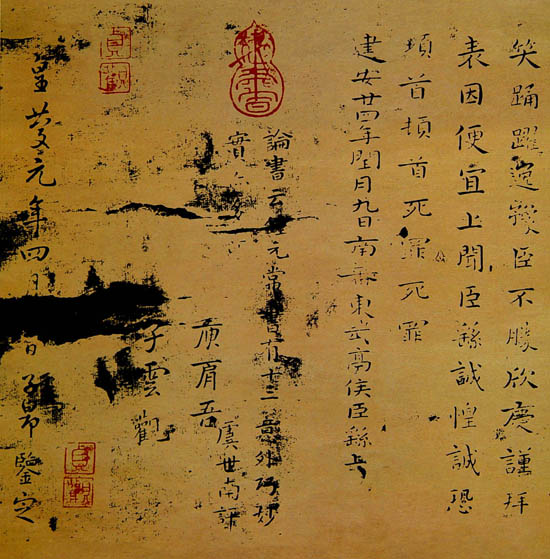 笑踊躍逸豫臣不勝欣慶謹拜
表因便宜上聞臣繇誠惶誠恐
頓首頓首死罪死罪
建安廿四年閏月九日南蕃東武亭侯臣繇上
論書云元常書有十二意外巧妙
實
虞世南評
庾肩吾
子雲觀
貞觀
皇慶元年四月日子昂鑒定
貞觀